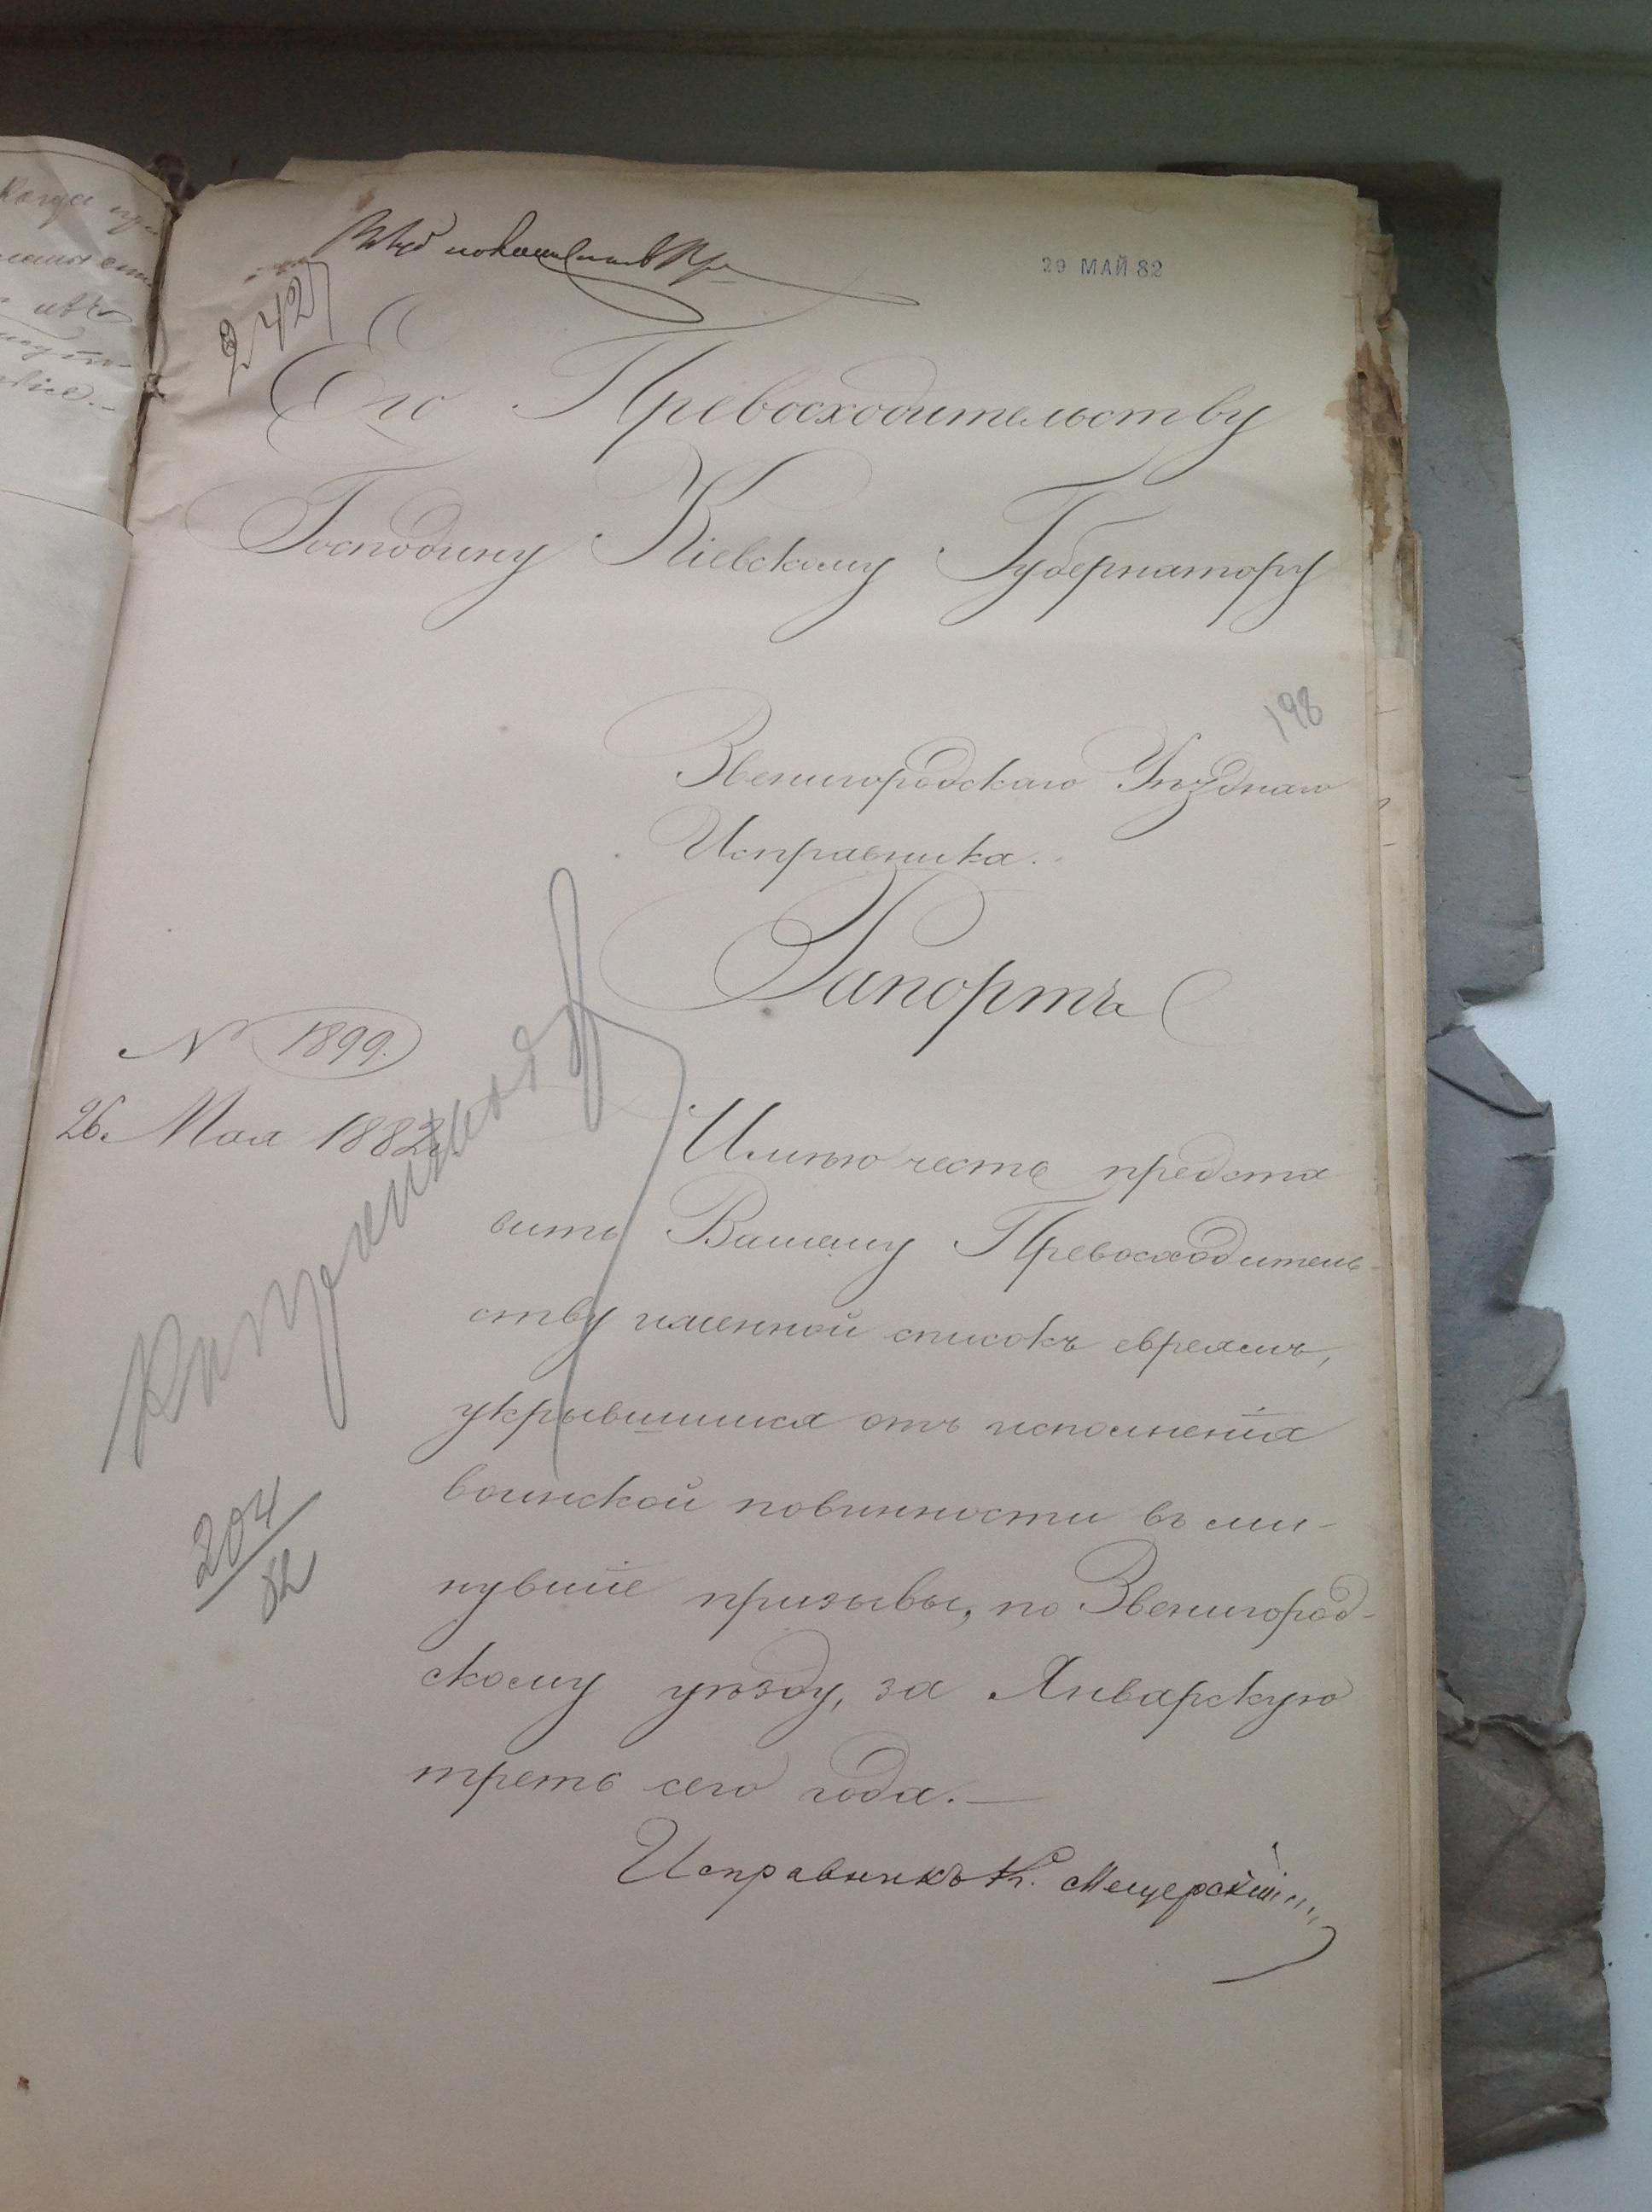 29 МАЙ 82
2427
Его Превосходительству
Господину Кіевскому Губернатору
198
Звенигородскаго Уѣзднаго
Исправника.
Рапортъ
№ 1899.
26 Мая 1882
Имѣю честь предста
вить Вашему Превосходитель-
ству именной списокъ евреямъ,
укрывшимся отъ исполненія
воинской повинности въ ми-
нувшіе призывы, по Звенигород-
скому уѣзду, за Январскую
треть сего года.—
204
82
Исправникъ К. Мещерскій